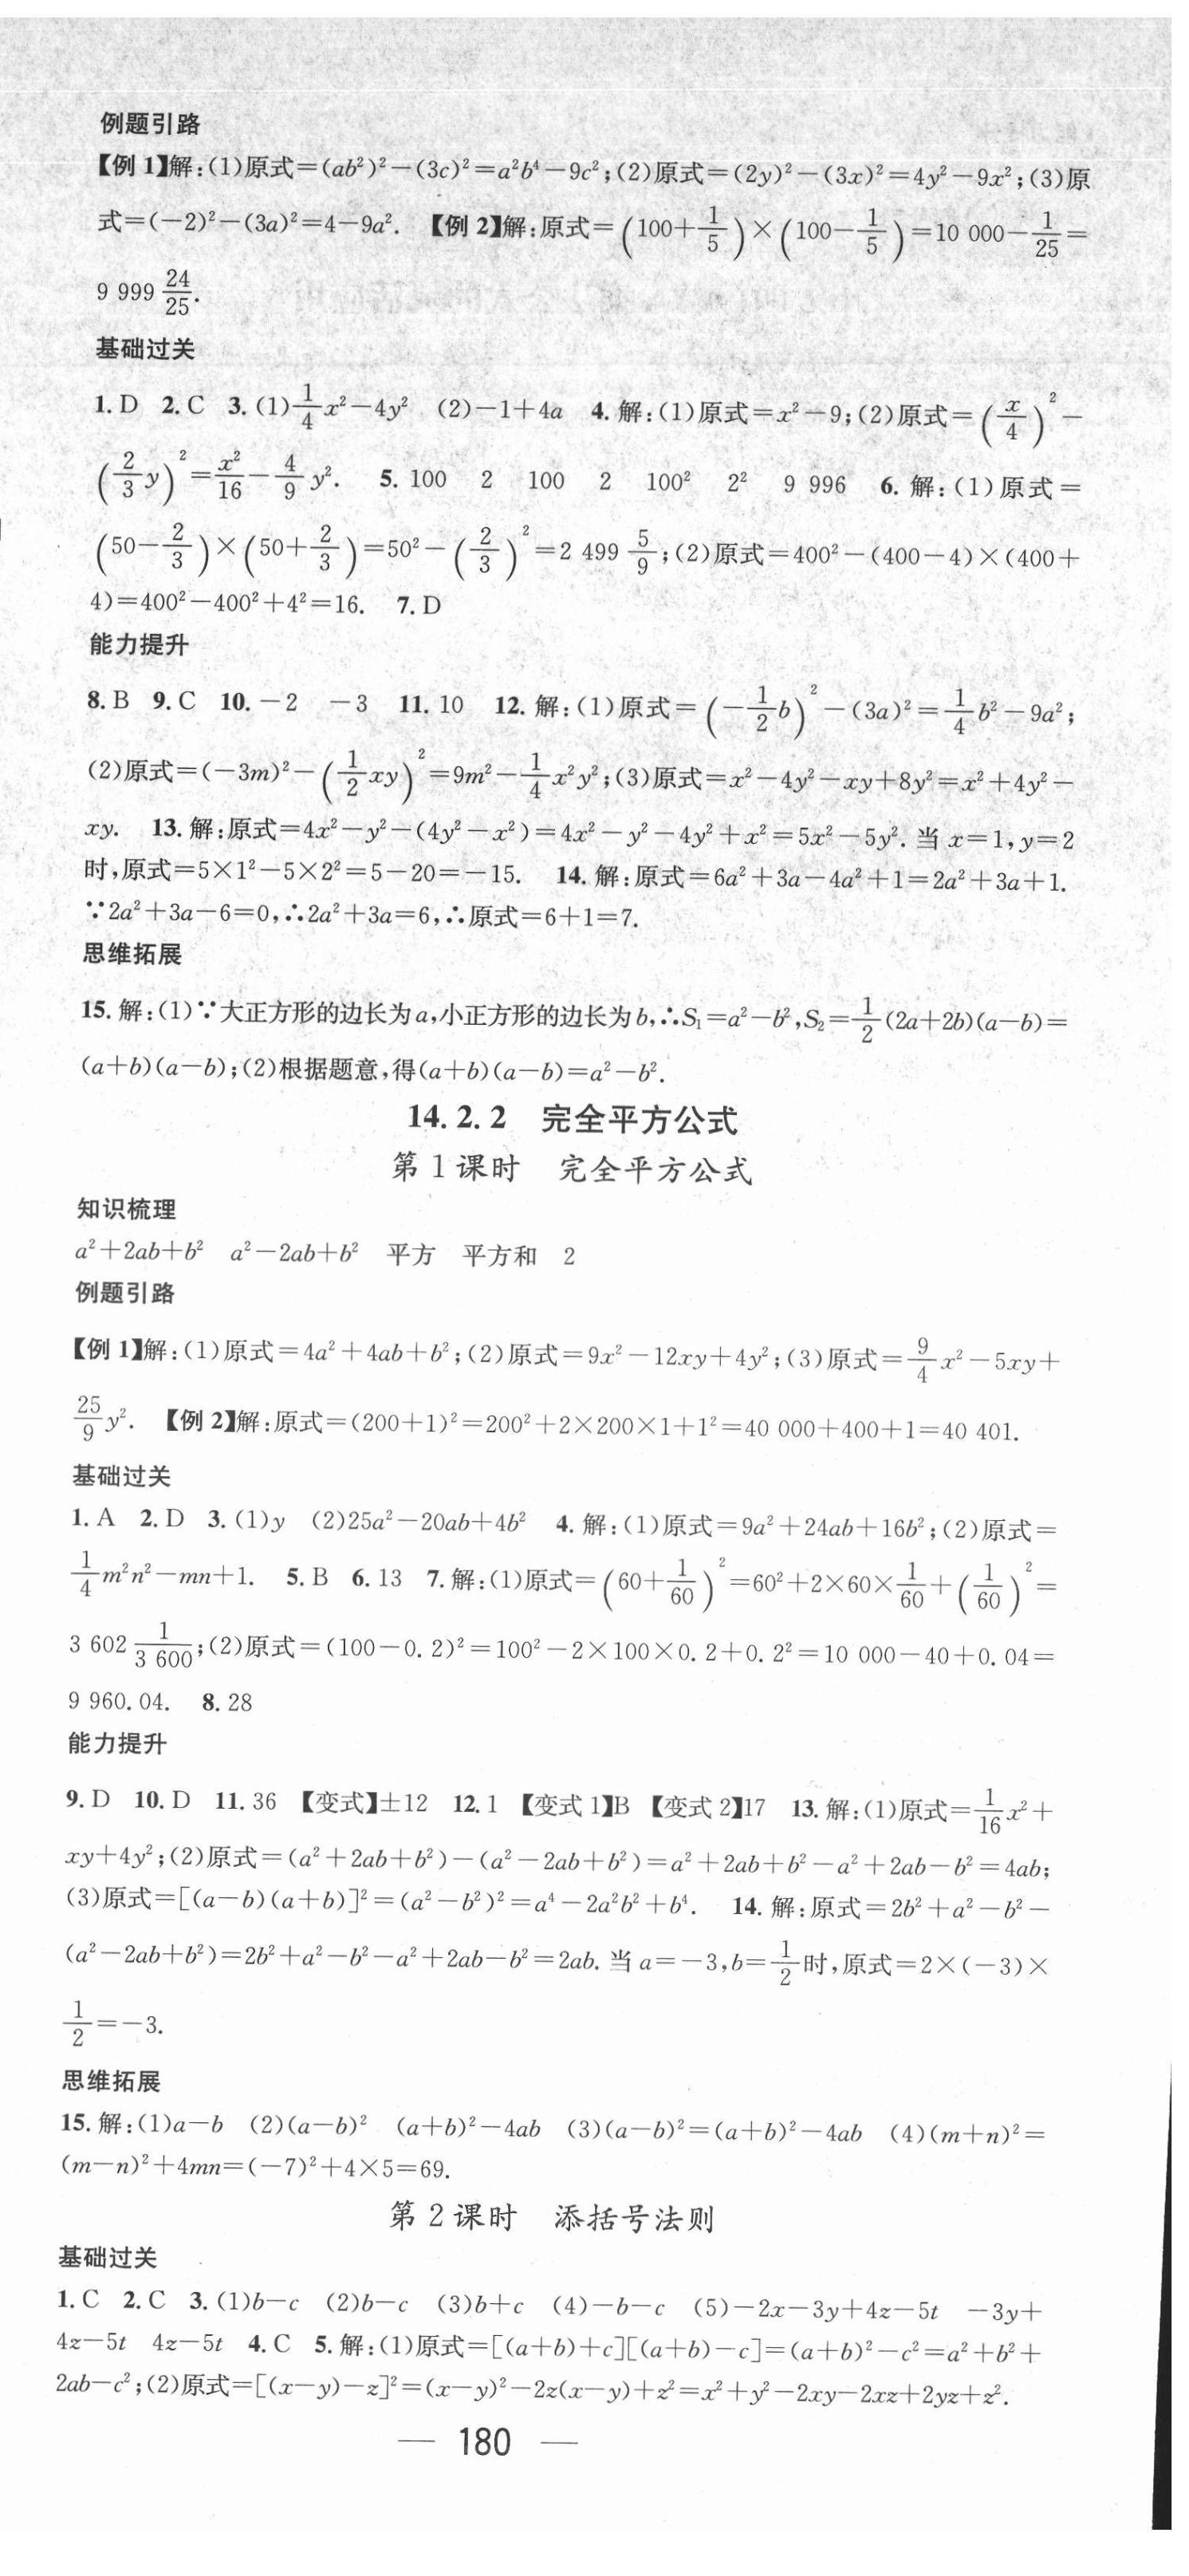 例题引路
【例 1】解:(1)原式=(ab²)²-(3c)²=a²b⁴-9c²;(2)原式=(2y)²-(3x)²=4y²-9x²;(3)原
式=(-2)²-(3a)²=4-9a². 【例 2】解:原式=(100+1/5)×(100-1/5)=10 000-1/25=
9 999 24/25.
基础过关
1. D 2. C 3. (1)1/4x²-4y² (2)-1+4a 4. 解:(1)原式=x²-9;(2)原式=(x/4)²-
(2/3y)²=x²/16-4/9y². 5. 100 2 100 2 100² 2² 9 996 6. 解:(1)原式=
(50-2/3)×(50+2/3)=50²-(2/3)²=2 499 5/9;(2)原式=400²-(400-4)×(400+
4)=400²-400²+4²=16. 7. D
能力提升
8. B 9. C 10. -2 -3 11. 10 12. 解:(1)原式=(-1/2b)²-(3a)²=1/4b²-9a²;
(2)原式=(-3m)²-(1/2xy)²=9m²-1/4x²y²;(3)原式=x²-4y²-xy+8y²=x²+4y²-
xy. 13. 解:原式=4x²-y²-(4y²-x²)=4x²-y²-4y²+x²=5x²-5y². 当 x=1,y=2
时,原式=5×1²-5×2²=5-20=-15. 14. 解:原式=6a²+3a-4a²+1=2a²+3a+1.
∵2a²+3a-6=0,∴2a²+3a=6,∴原式=6+1=7.
思维拓展
15. 解:(1)∵大正方形的边长为a,小正方形的边长为b,∴S₁=a²-b²,S₂=1/2(2a+2b)(a-b)=
(a+b)(a-b);(2)根据题意,得(a+b)(a-b)=a²-b².
14. 2. 2 完全平方公式
第 1 课时 完全平方公式
知识梳理
a²+2ab+b² a²-2ab+b² 平方 平方和 2
例题引路
【例 1】解:(1)原式=4a²+4ab+b²;(2)原式=9x²-12xy+4y²;(3)原式=9/4x²-5xy+
25/9y². 【例 2】解:原式=(200+1)²=200²+2×200×1+1²=40 000+400+1=40 401.
基础过关
1. A 2. D 3. (1)y (2)25a²-20ab+4b² 4. 解:(1)原式=9a²+24ab+16b²;(2)原式=
1/4m²n²-mn+1. 5. B 6. 13 7. 解:(1)原式=(60+1/60)²=60²+2×60×1/60+(1/60)²=
3 602 1/3 600;(2)原式=(100-0. 2)²=100²-2×100×0. 2+0. 2²=10 000-40+0. 04=
9 960. 04. 8. 28
能力提升
9. D 10. D 11. 36 【变式】±12 12. 1 【变式 1】B 【变式 2】17 13. 解:(1)原式=1/16x²+
xy+4y²;(2)原式=(a²+2ab+b²)-(a²-2ab+b²)=a²+2ab+b²-a²+2ab-b²=4ab;
(3)原式=[(a-b)(a+b)]²=(a²-b²)²=a⁴-2a²b²+b⁴. 14. 解:原式=2b²+a²-b²-
(a²-2ab+b²)=2b²+a²-b²-a²+2ab-b²=2ab. 当 a=-3,b=1/2时,原式=2×(-3)×
1/2=-3.
思维拓展
15. 解:(1)a-b (2)(a-b)² (a+b)²-4ab (3)(a-b)²=(a+b)²-4ab (4)(m+n)²=
(m-n)²+4mn=(-7)²+4×5=69.
第 2 课时 添括号法则
基础过关
1. C 2. C 3. (1)b-c (2)b-c (3)b+c (4)-b-c (5)-2x-3y+4z-5t -3y+
4z-5t 4z-5t 4. C 5. 解:(1)原式=[(a+b)+c][(a+b)-c]=(a+b)²-c²=a²+b²+
2ab-c²;(2)原式=[(x-y)-z]²=(x-y)²-2z(x-y)+z²=x²+y²-2xy-2xz+2yz+z².
— 180 —